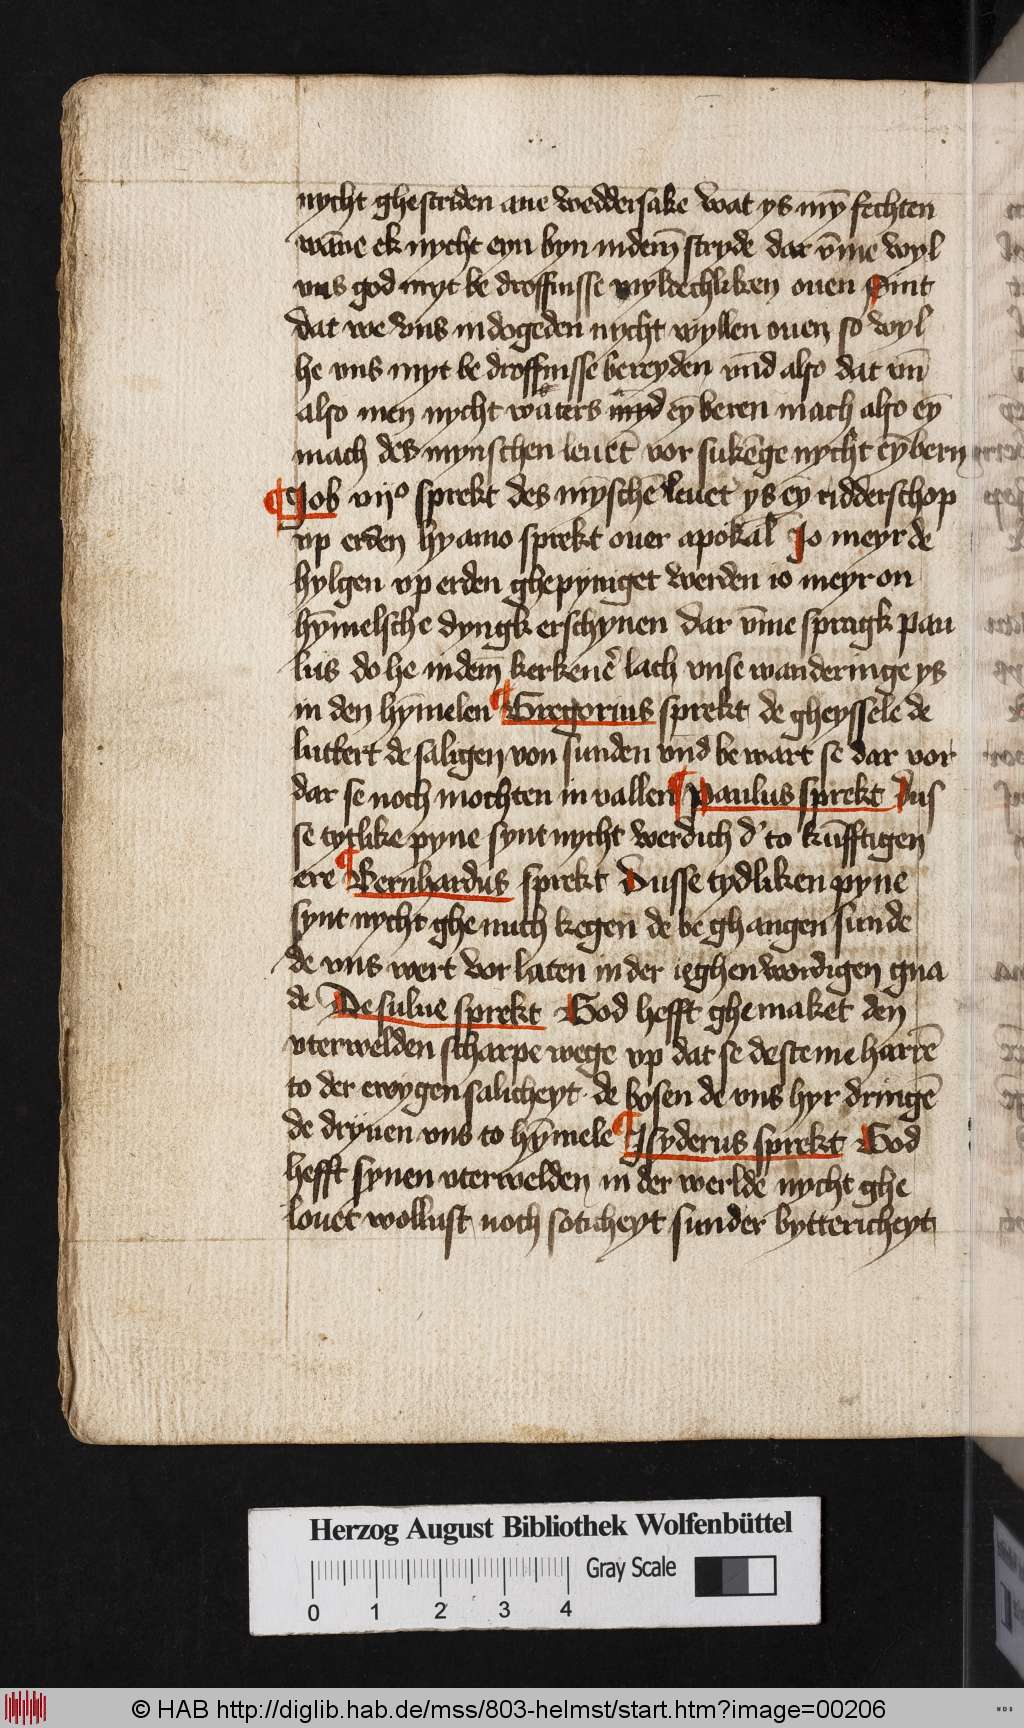 nycht ghestriden ane weddersake wat ys mȳ fechten
wāne ek nycht eyn byn in dem̄ stryde dar v̄me wyl
vns god myt be droffnisse myldechliken ouen Sint
dat we vns in dogeden nycht wyllen ouen so wyl
he vns myt be droffnisse bereyden vn̄d also dat vn̄
also men nycht waters myd eȳ beren mach also eȳ
mach des mynschen leuet vor sukēge nycht eȳ bern
¶ Job vijº sprekt des mȳschē leuet ys eȳ ridderschop
vp erden hyamo sprekt ouer apokal Jo meyr de
hylgen vp erden ghepyniget werden io meyr on
hȳmelsche dyngk erschynen dar v̄me spragk pau
lus do he in dem kerkenēr lach vnse wanderinge ys
in den hȳmelen ¶ Gregorius sprekt de gheyssele de
luttert de saligen von sunden vnd be wart se dar vor
dar se noch mochten in vallen ¶ Paulus sprekt Dus
se tytlike pyne synt nycht werdich d' to kūfftigen
ere ¶ Bernhardus sprekt Dusse tydliken pyne
synt nycht ghe nuch kegen de be ghangen sunde
de vns wert vor laten in der ieghenwordigen gna
de De sulue sprekt God hefft ghemaket den
vterwelden scharpe wege vp dat se deste me harrē
to der ewygen salicheyt · de bosen de vns hyr dringē
de dryuen vns to hȳmele ¶ Jsyderus sprekt God
hefft synen vterwelden in der werlde nycht ghe
louet wollust noch soticheyt sunder byttericheyt
Herzog August Bibliothek Wolfenbüttel
Gray Scale
0 1 2 3 4
© HAB http://diglib.hab.de/mss/803-helmst/start.htm?image=00206